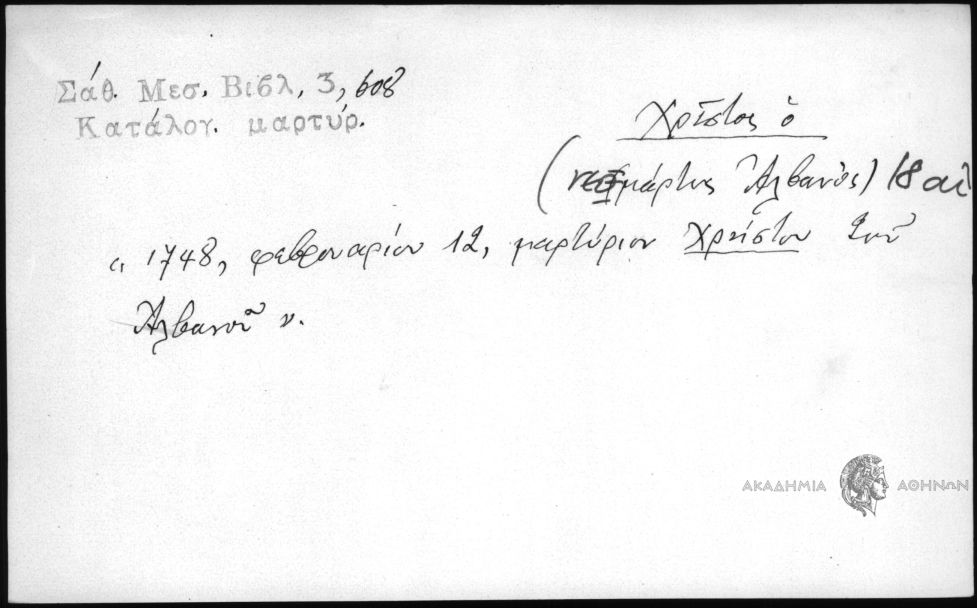 Σάθ. Μεσ. Βιβλ, 3, 608
Κατάλογ. μαρτύρ.
Χρῖστος ὁ
(νεομάρτυς Ἀλβανὸς) 18 αἰ
" 1748, φεβρουαρίου 12, μαρτύριον Χρήστου τοῦ
Ἀλβανοῦ ".
ΑΚΑΔΗΜΙΑ ΑΘΗΝΩΝ